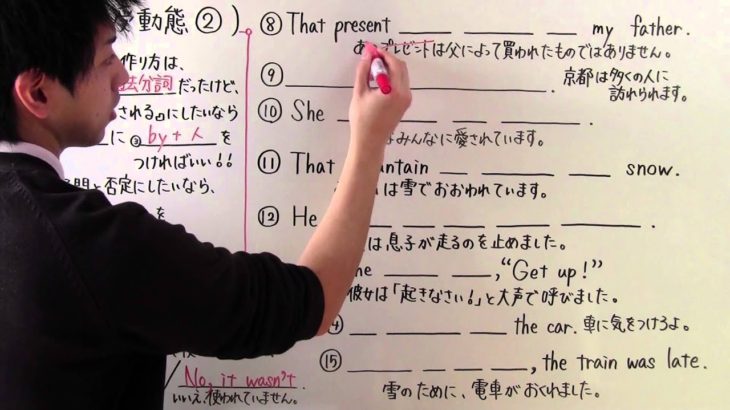 動態②)
作り方は、
去分詞だったけど、
される」にしたいなら
に ② by+人 を
つければいい!!
問と否定にしたいなら、
を
No, it wasn't.
いいえ、使われていません。
⑧ That present ___ ___ ___ ___ my father.
プレゼントは父によって買われたものではありません。
⑨ ___. 京都は多くの人に
訪れられます。
⑩ She ___ ___ ___ ___.
みんなに愛されています。
⑪ That ntain ___ ___ ___ snow.
は雪でおおわれています。
⑫ He ___ ___ ___ ___ ___.
は息子が走るのを止めました。
he ___ ___ ___, “Get up!”
彼女は「起きなさい!」と大声で呼びました。
___ ___ ___ ___ the car. 車に気をつけろよ。
⑮ ___ ___ ___ ___, the train was late.
雪のために、電車がおくれました。